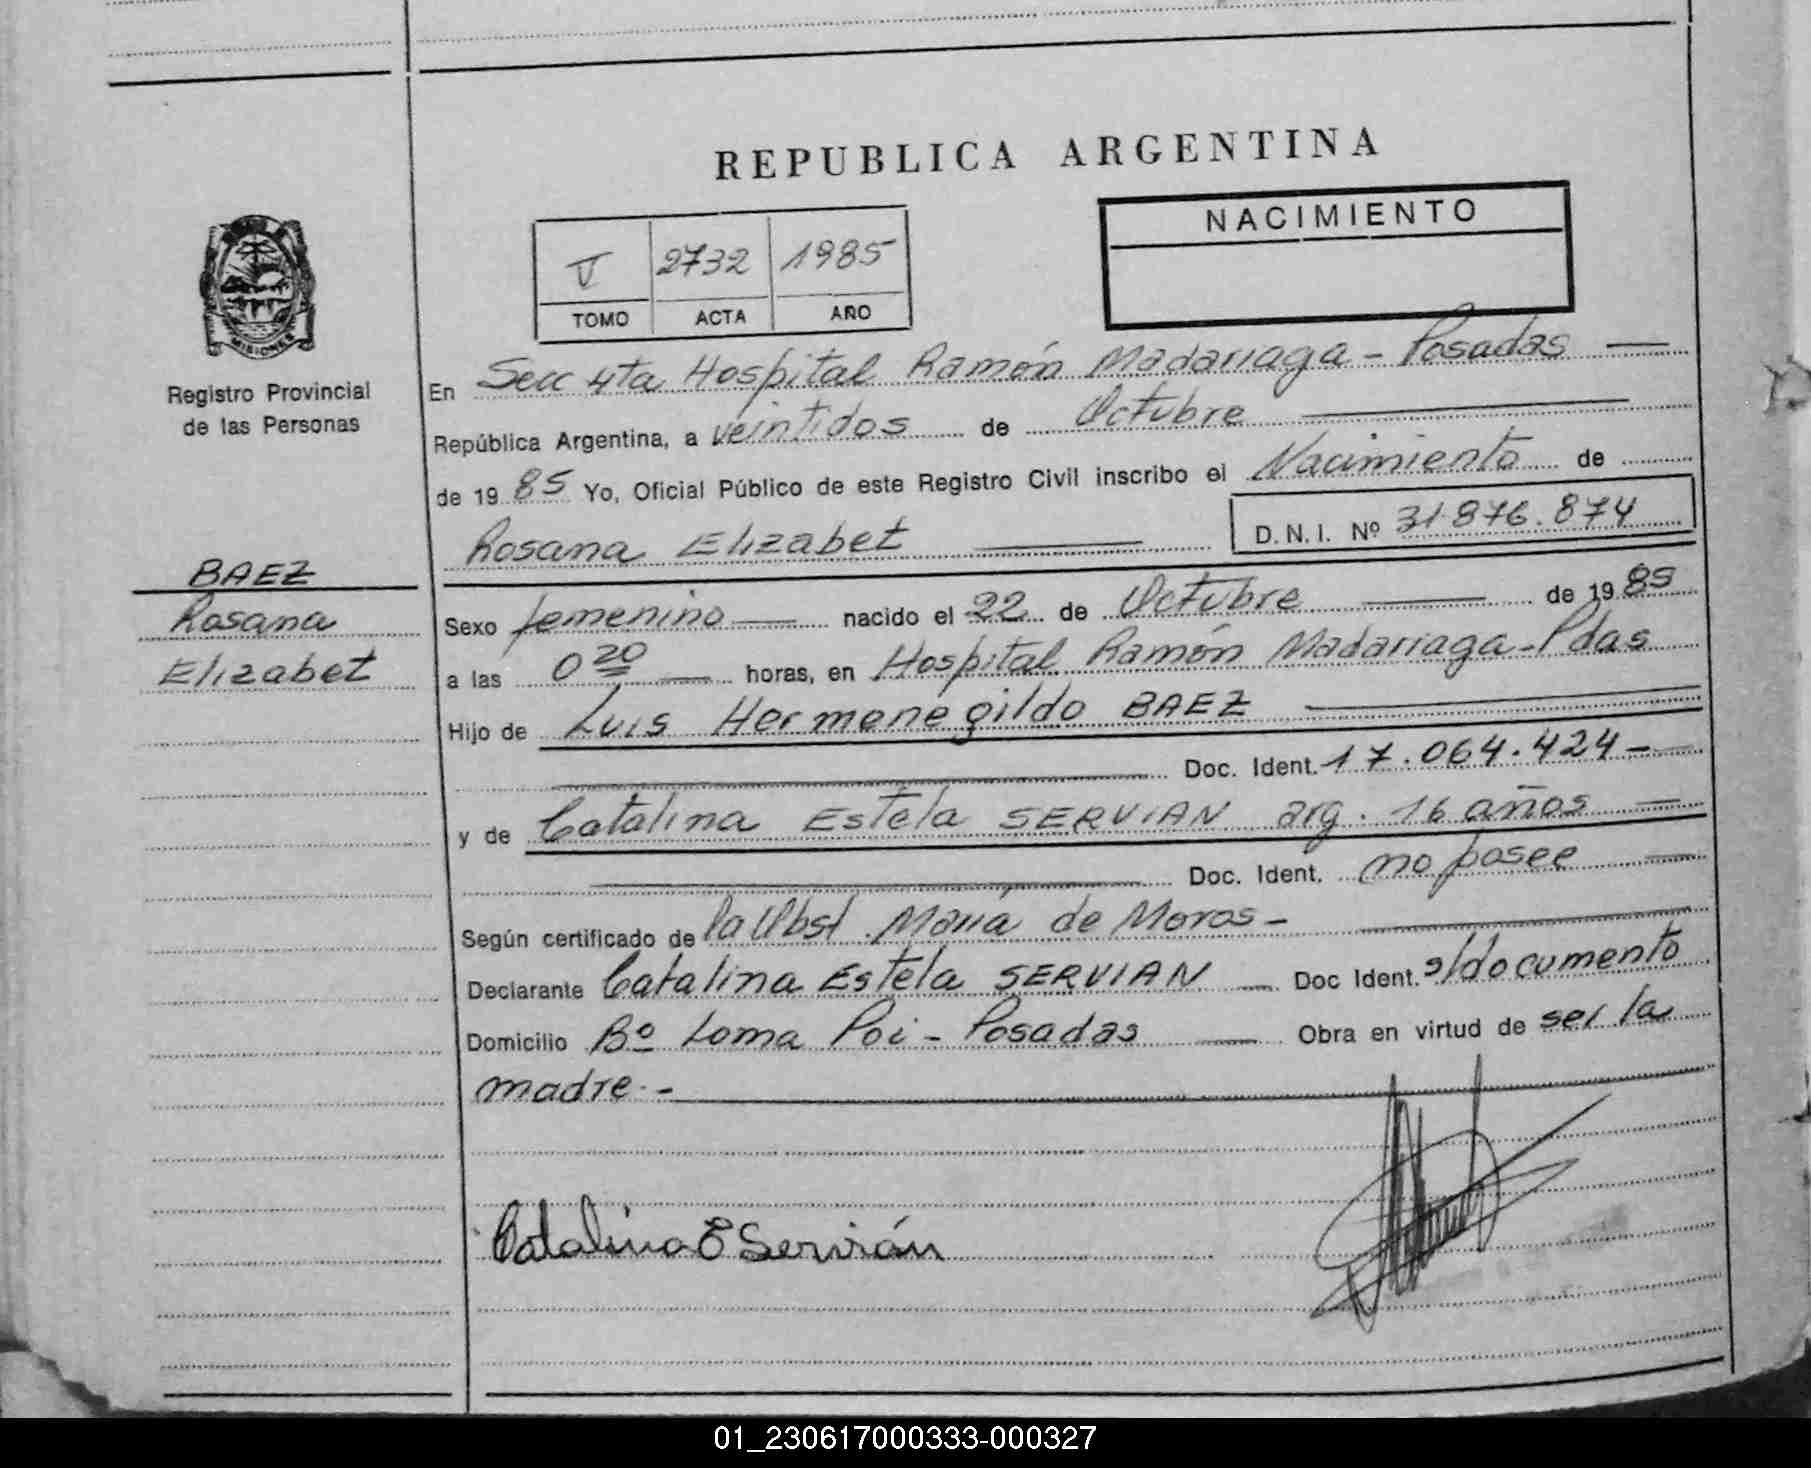 REPUBLICA ARGENTINA
NACIMIENTO
V 2732 1985
TOMO ACTA AÑO
MISIONES
Registro Provincial
de las Personas
En Secc 4ta Hospital Ramón Madariaga - Posadas —
República Argentina, a veintidos de Octubre
de 1985 Yo, Oficial Público de este Registro Civil inscribo el Nacimiento de
Rosana Elizabet D.N.I. Nº 31.876.874
BAEZ
Rosana
Elizabet
Sexo femenino — nacido el 22 de Octubre — de 1985
a las 0 20 — horas, en Hospital Ramón Madariaga - Pdas
Hijo de Luis Hermenegildo BAEZ
Doc. Ident. 17.064.424 -
y de Catalina Estela SERVIAN arg. 16 años —
Doc. Ident. no posee —
Según certificado de la Obst. María de Moros -
Declarante Catalina Estela SERVIAN — Doc Ident. s/documento
Domicilio Bº Loma Poi - Posadas — Obra en virtud de ser la
madre.-
Catalina E Servián
01_230617000333-000327